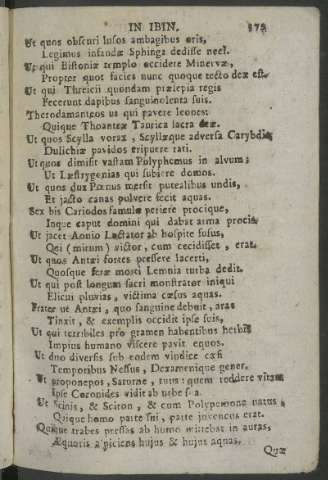 IN IBIN. 575
Ut quos obscuri lusos ambagibus oris,
Legimus infandæ Sphinga dedisse neci.
Ut qui Bistoniæ templo occidere Minervæ,
Propter quot facies nunc quoque tecto deæ est.
Ut qui Threicii quondam præsepia regis
Fecerunt dapibus sanguinolenta suis.
Therodamanteos us qui pavere leones:
Quique Thoanteæ Taurica sacra deæ.
Ut quos Scylla vorax, Scyllæque adversa Carybdis
Dulichiæ pavidos eripuere rati.
Ut quos dimisit vastam Polyphemus in alvum:
Ut Læstrygenias qui subiere domos.
Ut quos dux Pœnus mersit putealibus undis,
Et jacto canas pulvere fecit aquas.
Sex bis Cariodos famulæ periere procique,
Inque caput domini qui dabat arma procis
Ut jacet Aonio Luctator ab hospite fusus,
Qui (mirum) victor, cum cecidisset, erat.
Ut quos Antæi fortes pressere lacerti,
Quosque feræ morti Lemnia turba dedit.
Ut qui post longum sacri monstrator iniqui
Elicui pluvias, victima cæsus aquas.
Frater ut Antæi, quo sanguine debuit, aras
Tinxit, & exemplis occidit ipse suis,
Ut qui terribiles pro gramen habentibus herbis
Impius humano viscere pavit equos.
Ut duo diversis sub eodem vindice cæsi
Temporibus Nessus, Dexamenique gener.
Ut pronepos, Saturne, tuus: quem reddere vitam
Ipse Coronides vidit ab urbe sua.
Ut Scinis, & Sciron, & cum Polypemone natus,
Quique homo parte sui, parte juvencus erat.
Quique trabes pressas ab humo mittebat in auras,
Æquoris aspiciens hujus & hujus aquas.
Quæ